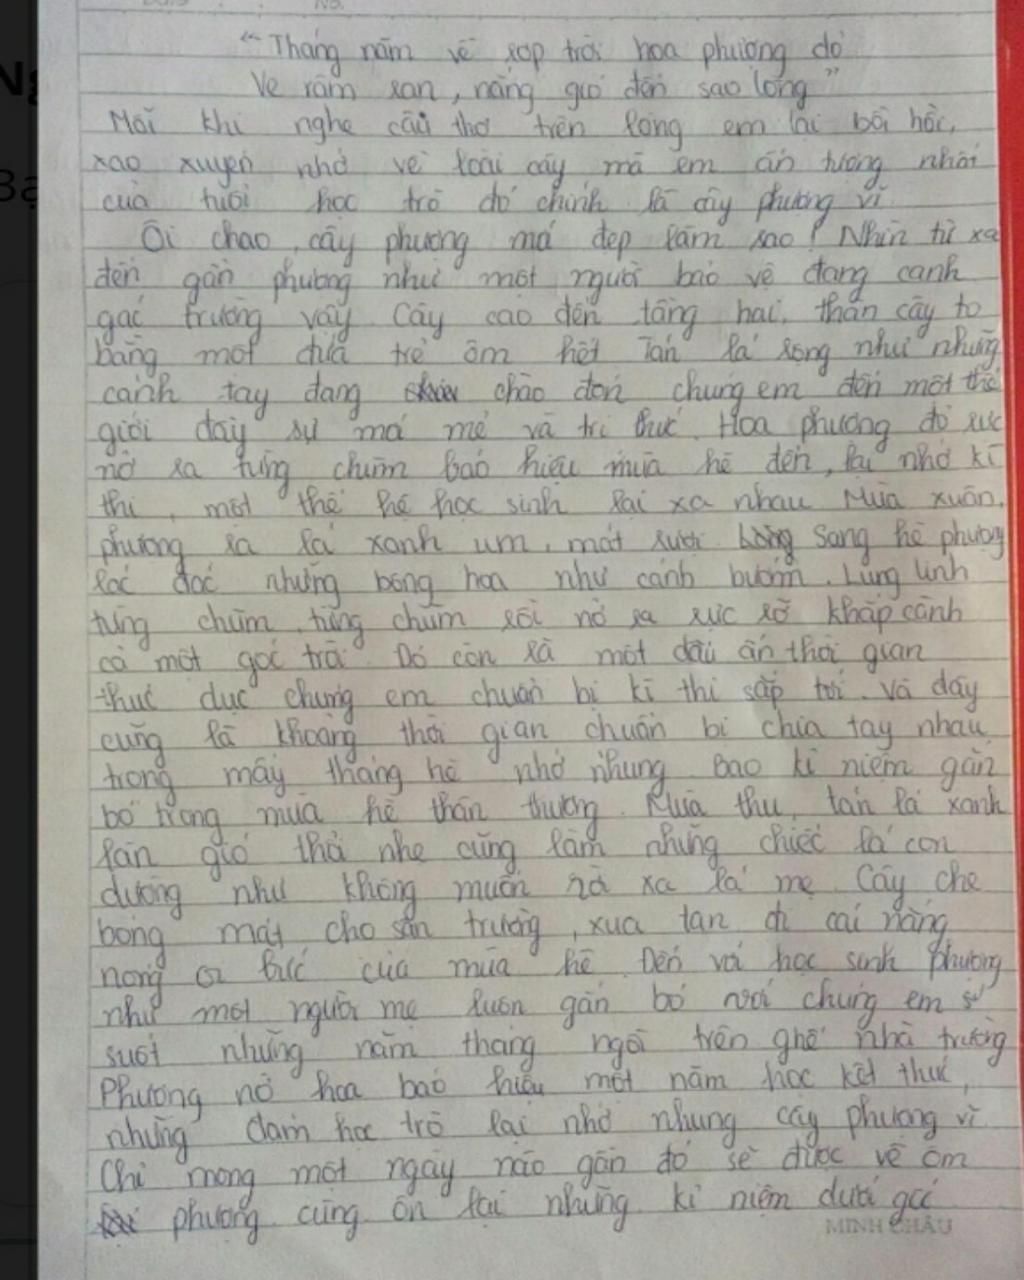 "Tháng năm về rợp trời hoa phượng đỏ
Ve râm ran, nắng gió đến sao lòng"
Mỗi khi nghe câu thơ trên lòng em lại bồi hồi,
xao xuyến nhớ về loài cây mà em ấn tượng nhất
của tuổi học trò đó chính là cây phượng vĩ
Ôi chao, cây phượng mới đẹp làm sao! Nhìn từ xa
đến gần phượng như một người bảo vệ đang canh
gác trường vậy. Cây cao đến tầng hai, thân cây to
bằng một đứa trẻ ôm hết Tán lá rộng như những
cánh tay đang chào đón chúng em đến một thế
giới đầy sự mới mẻ và tri thức. Hoa phượng đỏ rực
nở ra từng chùm báo hiệu mùa hè đến, lại nhớ kì
thi, một thế hệ học sinh lại xa nhau Mùa xuân,
phượng ra lá xanh um, mát rượi Sang hè phượng
lác đác những bông hoa như cánh bướm. Lung linh
từng chùm, từng chùm rồi nở ra rực rỡ khắp cành
cả một góc trời Đó còn là một dấu ấn thời gian
thúc dục chúng em chuẩn bị kì thi sắp tới. và đây
cũng là khoảng thời gian chuẩn bị chia tay nhau
trong mấy tháng hè nhớ nhung bao kỉ niệm gắn
bó trong mùa hè thân thương. Mùa thu, tán lá xanh
làn gió thả nhẹ cũng làm những chiếc lá con
dường như không muốn rời xa lá mẹ Cây che
bóng mát cho sân trường, xua tan đi cái nắng
nóng bức của mùa hè Đến với học sinh phượng
như một người mẹ luôn gắn bó với chúng em
suốt những năm tháng ngồi trên ghế nhà trường
Phượng nở hoa báo hiệu một năm học kết thúc,
những đám học trò lại nhớ nhung cây phượng vĩ
Chỉ mong một ngày nào gần đó sẽ được về ôm
phượng cùng ôn lại những kỉ niệm dưới gốc
MINH CHÂU